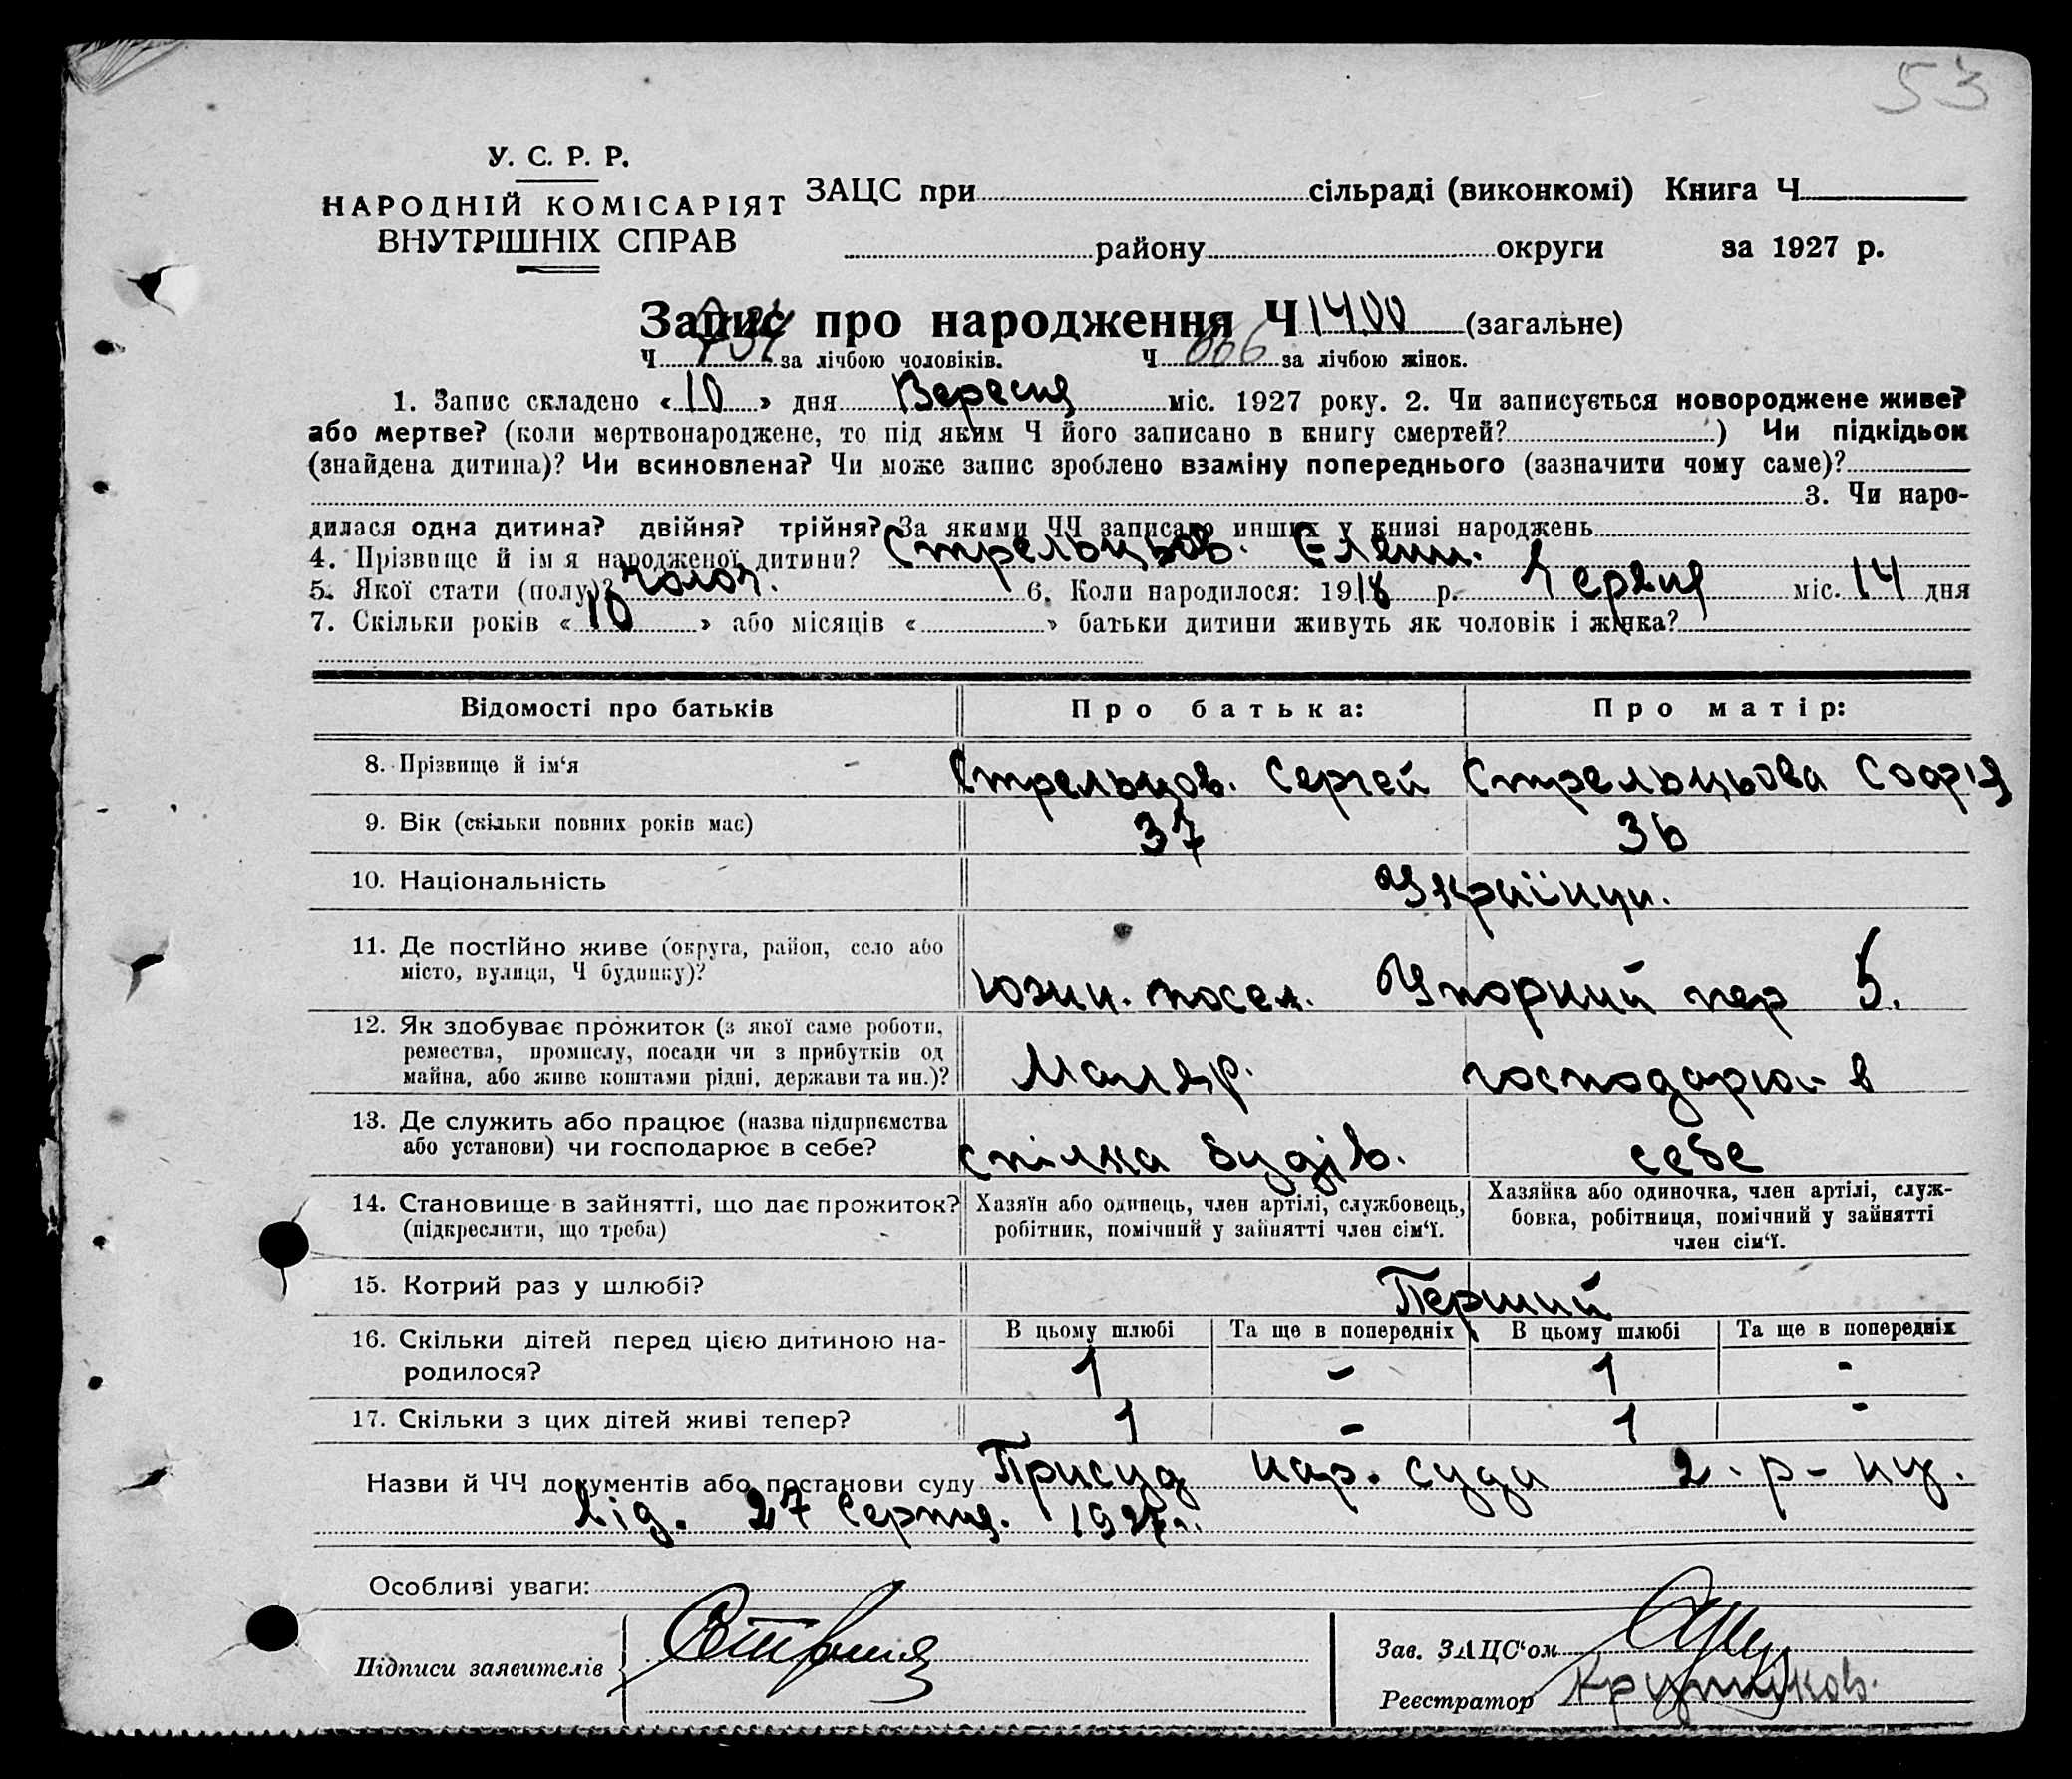 53
У. С. Р. Р.
НАРОДНІЙ КОМІСАРІЯТ
ВНУТРІШНІХ СПРАВ
ЗАЦС при сільраді (виконкомі) Книга Ч
району округи за 1927 р.
Запис про народження Ч 1400 (загальне)
Ч 734 за лічбою чоловіків. Ч 666 за лічбою жінок.
1. Запис складено «10» дня Вересня міс. 1927 року. 2. Чи записується новороджене живе?
або мертве? (коли мертвонароджене, то під яким Ч його записано в книгу смертей? ) Чи підкідьок
(знайдена дитина)? Чи всиновлена? Чи може запис зроблено взаміну попереднього (зазначити чому саме)?
3. Чи наро-
дилася одна дитина? двійня? трійня? За якими ЧЧ записано инших у книзі народжень
4. Прізвище й ім я народженої дитини? Стрельцьов.
5. Якої стати (полу)? чолов. 6. Коли народилося: 1918 р. Червня міс. 14 дня
7. Скільки років «10» або місяців « » батьки дитини живуть як чоловік і жінка?
Відомості про батьків Про батька: Про матір:
8. Прізвище й ім‘я Стрельцов. Сергей Стрельцьова Софія
9. Вік (скільки повних років має) 37 36
10. Національність Українци.
11. Де постійно живе (округа, район, село або
місто, вулиця, Ч будинку)? южн. посел. Упорний пер 5.
12. Як здобуває прожиток (з якої саме роботи,
ремества, промислу, посади чи з прибутків од
майна, або живе коштами рідні, держави та ин.)? Маляр. господарює в
13. Де служить або працює (назва підприємства
або установи) чи господарює в себе? спілка будів. себе
14. Становище в зайнятті, що дає прожиток?
(підкреслити, що треба)
Хазяїн або одинець, член артілі, службовець,
робітник, помічний у зайнятті член сім‘ї.
Хазяйка або одиночка, член артілі, служ-
бовка, робітниця, помічний у зайнятті
член сім‘ї.
15. Котрий раз у шлюбі? Перший
16. Скільки дітей перед цією дитиною на-
родилося?
В цьому шлюбі Та ще в попередніх В цьому шлюбі Та ще в попередніх
1 - 1 -
17. Скільки з цих дітей живі тепер? 1 - 1 -
Назви й ЧЧ документів або постанови суду Присуд нар. суда 2-р-ну.
від. 27 Серпня. 1927р.
Особливі уваги:
Підписи заявителів
Зав. ЗАЦС‘ом
Реєстратор